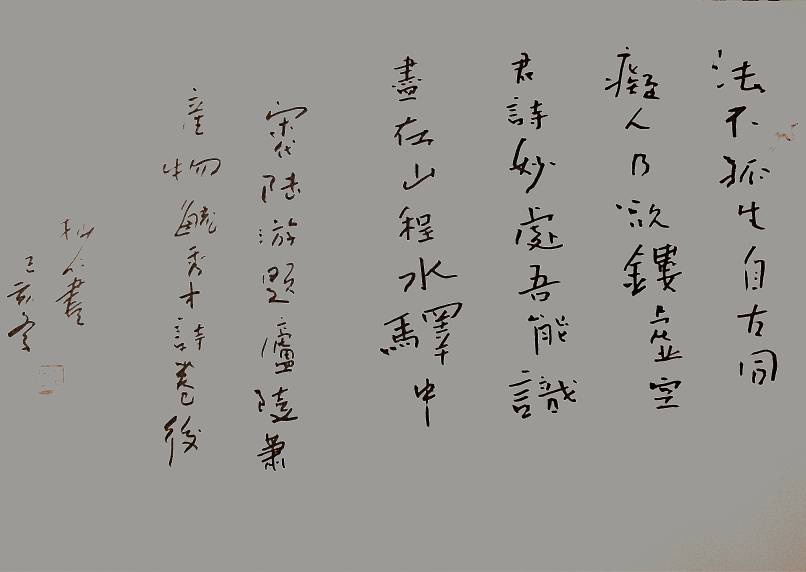 法不孤生自古同
癡人乃欲鏤虛空
君詩妙處吾能識
盡在山程水驛中
宋代陸游題廬陵蕭
產物毓秀才詩卷後
己亥冬